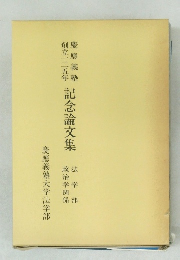 慶應義塾
創立一二五年
記念論文集
法学部
政治学関係
慶應義塾大学法学部